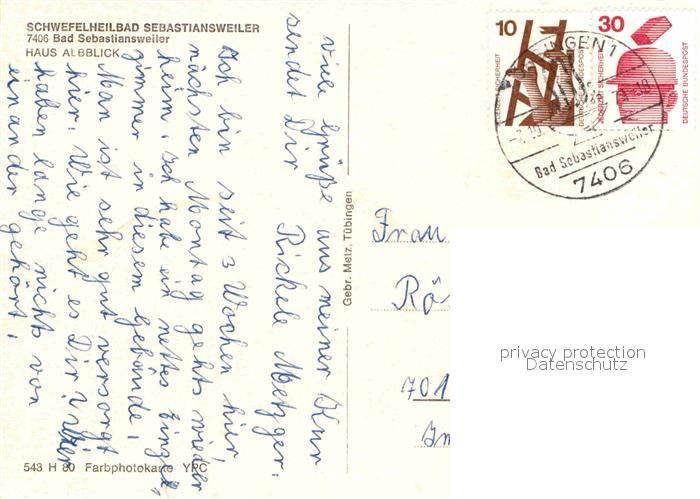 SCHWEFELHEILBAD SEBASTIANSWEILER
7406 Bad Sebastiansweiler
HAUS ALBBLICK
viele Grüße aus meiner Kur
sendet Dir Rickele Metzger.
Ich bin seit 3 Wochen hier,
nächsten Montag gehts wieder
heim. Ich habe ein nettes Einzel
zimmer in diesem Gebäude.
Man ist sehr gut versorgt
hier. Wie geht es Dir? Wir
haben lange nichts von
einander gehört.
543 H 80 Farbphotokarte YPC
Gebr. Metz, Tübingen
10
JEDERZEIT SICHERHEIT
DEUTSCHE BUNDESPOST
30
JEDERZEIT SICHERHEIT
DEUTSCHE BUNDESPOST
INGEN 1
Bad Sebastiansweiler
7406
Frau
Rös
701
Im
privacy protection
Datenschutz